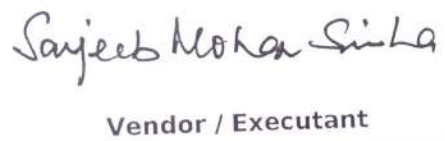 Sanjeeb Mohan Sinha
Vendor / Executant